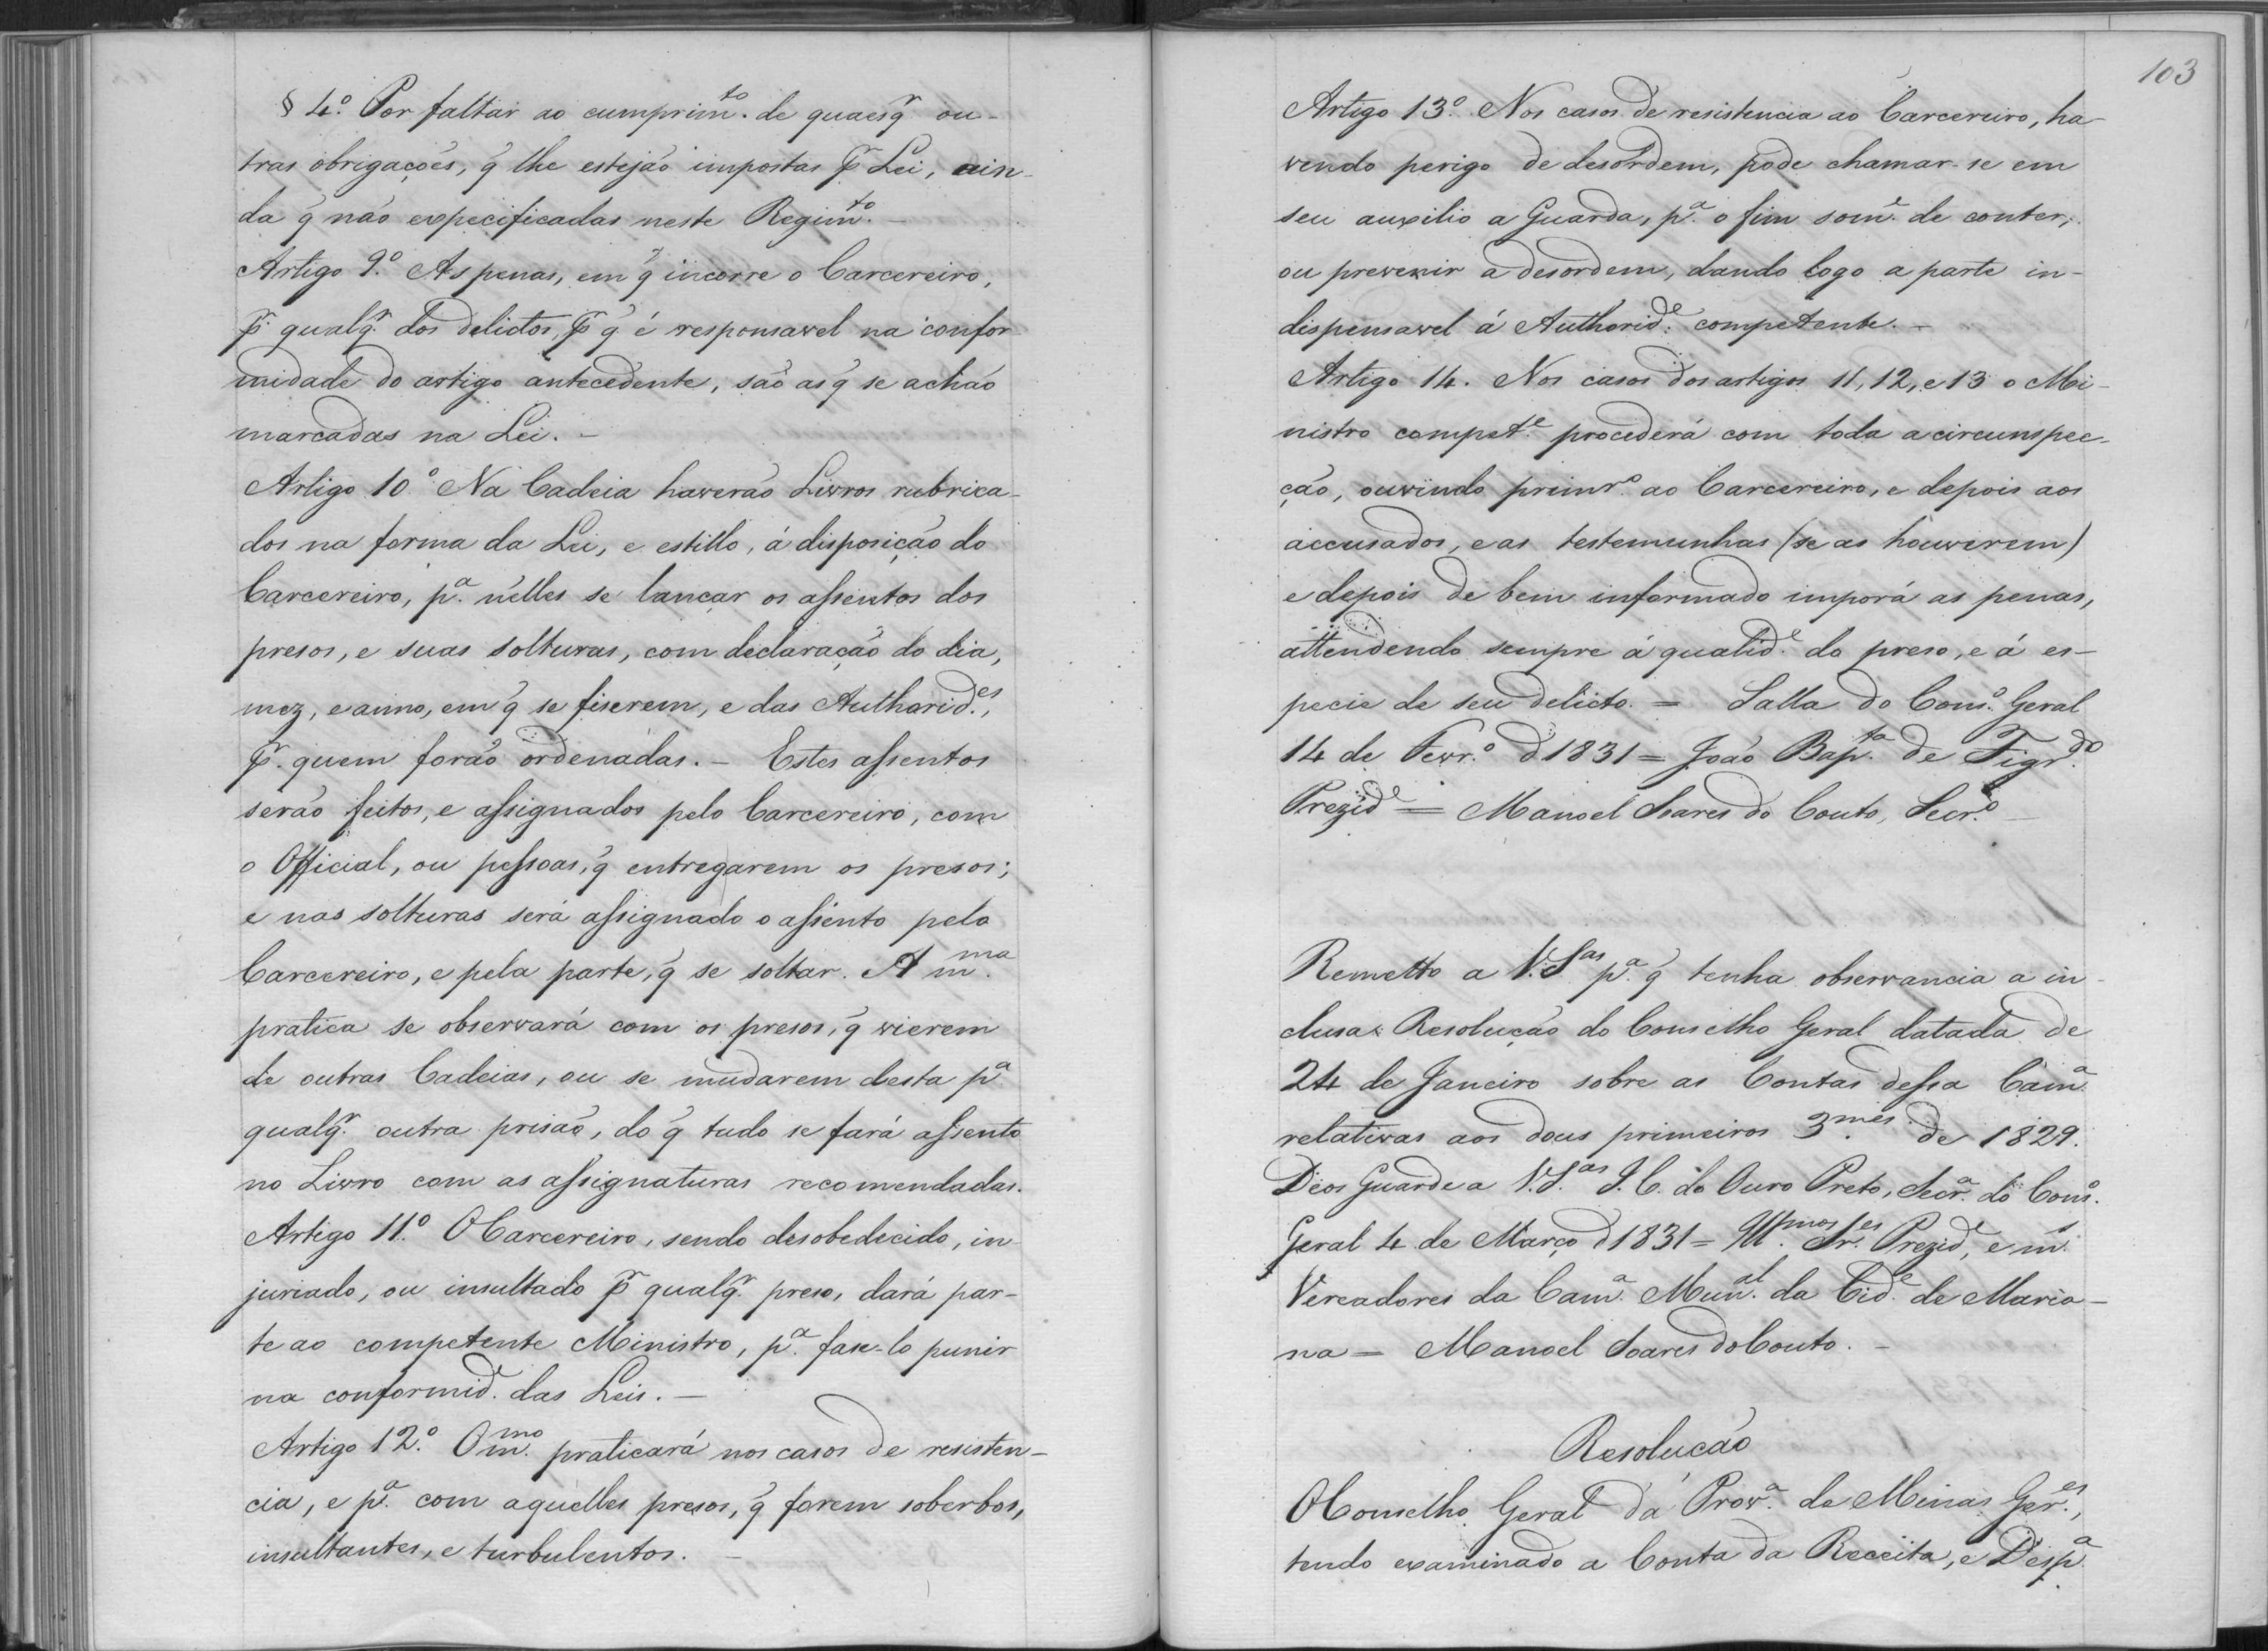 § 4.º Por faltar ao cumprim.to de quaesqr ou-
tras obrigações, q̃ lhe estejão impostas pr Lei, ain-
da q̃ não expecificadas neste Regim.to –
Artigo 9.º As penas, em q̃ incorre o Carcereiro,
pr. qualqr. dos delictos, pr q̃ é responsavel na confor
midade do artigo antecedente, são as q̃ se achão
marcadas na Lei. –
Artigo 10º Na Cadeia haverão Livros rubrica-
dos na forma da Lei, e estillo, á disposição do
Carcereiro, p.a nelles se lançar os assentos dos
presos, e suas solturas, com declaração do dia,
mez, e anno, em q̃ se fiserem, e das Authorid.es,
pr. quem forão ordenadas. – Estes assentos
serão feitos, e assignados pelo Carcereiro, com
o Official, ou pessoas, q̃ entregarem os presos;
e nas solturas será assignado o assento pelo
Carcereiro, e pela parte, q̃ se soltar. A m.ma
pratica se observará com os presos, q̃ vierem
de outras Cadeias, ou se mudarem desta pa
qualqr. outra prisão, do q̃ tudo se fará assento
no Livro com as assignaturas recomendadas.
Artigo 11.º O Carcereiro, sendo desobedecido, in
juriado, ou insultado pr qualqr. preso, dará par-
te ao competente Ministro, p.a fase-lo punir
na conformid.e das Leis. –
Artigo 12.º O m.mo praticará nos casos de resisten-
cia, e p.a com aquelles presos, q̃ forem soberbos,
insultantes, e turbulentos. –
103
Artigo 13.º Nos casos de resistencia ao Carcereiro, ha-
vendo perigo de desordem, pode chamar-se em
seu auxilio a Guarda, p.a o fim som.e de conter,
ou prevenir a desordem, dando logo a parte in-
dispensavel á Authorid.e competente. –
Artigo 14. Nos casos dos artigos 11, 12, e 13 o Mi-
nistro compet.e procederá com toda a circunspec-
ção, ouvindo primr.o ao Carcereiro, e depois aos
accusados, e as testemunhas (se as houverem)
e depois de bem informado imporá as penas,
attendendo sempre á qualid.e do preso, e á es-
pecie de seu delicto. = Salla do Cons.o Geral
14 de Fevr.o d 1831 = João Bap.ta de Figr.do
Prezid.e = Manoel Soares do Couto, Secr.o –
Remetto a V.Sas p.a q̃ tenha observancia a in-
clusa Resolução do Conselho Geral datada de
24 de Janeiro sobre as Contas dessa Cam.a
relativas aos dous primeiros 3.mes de 1829.
Deos Guarde a V.S.as I. C. do Ouro Preto, Secr.a do Cons.o
Geral 4 de Março d 1831 = Ill.mos Sr.es Prezid.e, e m.s
Vereadores da Cam.a Mun.al da Cid.e de Maria-
na = Manoel Soares do Couto. –
Resolucão
O Conselho Geral da Prov.a de Minas Ger.es,
tendo examinado a Conta da Receita, e Desp.a